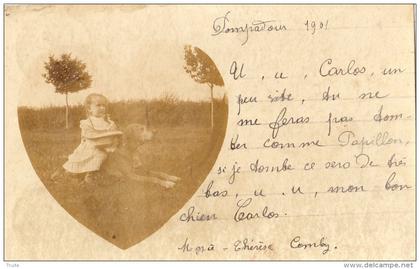 Pompadour 1901
U, u, Carlos, un
peu vite, tu ne
me feras pas tom-
ber comme Papillon,
si je tombe ce sera de très
bas, u. u, mon bon
chien Carlos.
Thérèse Comby.